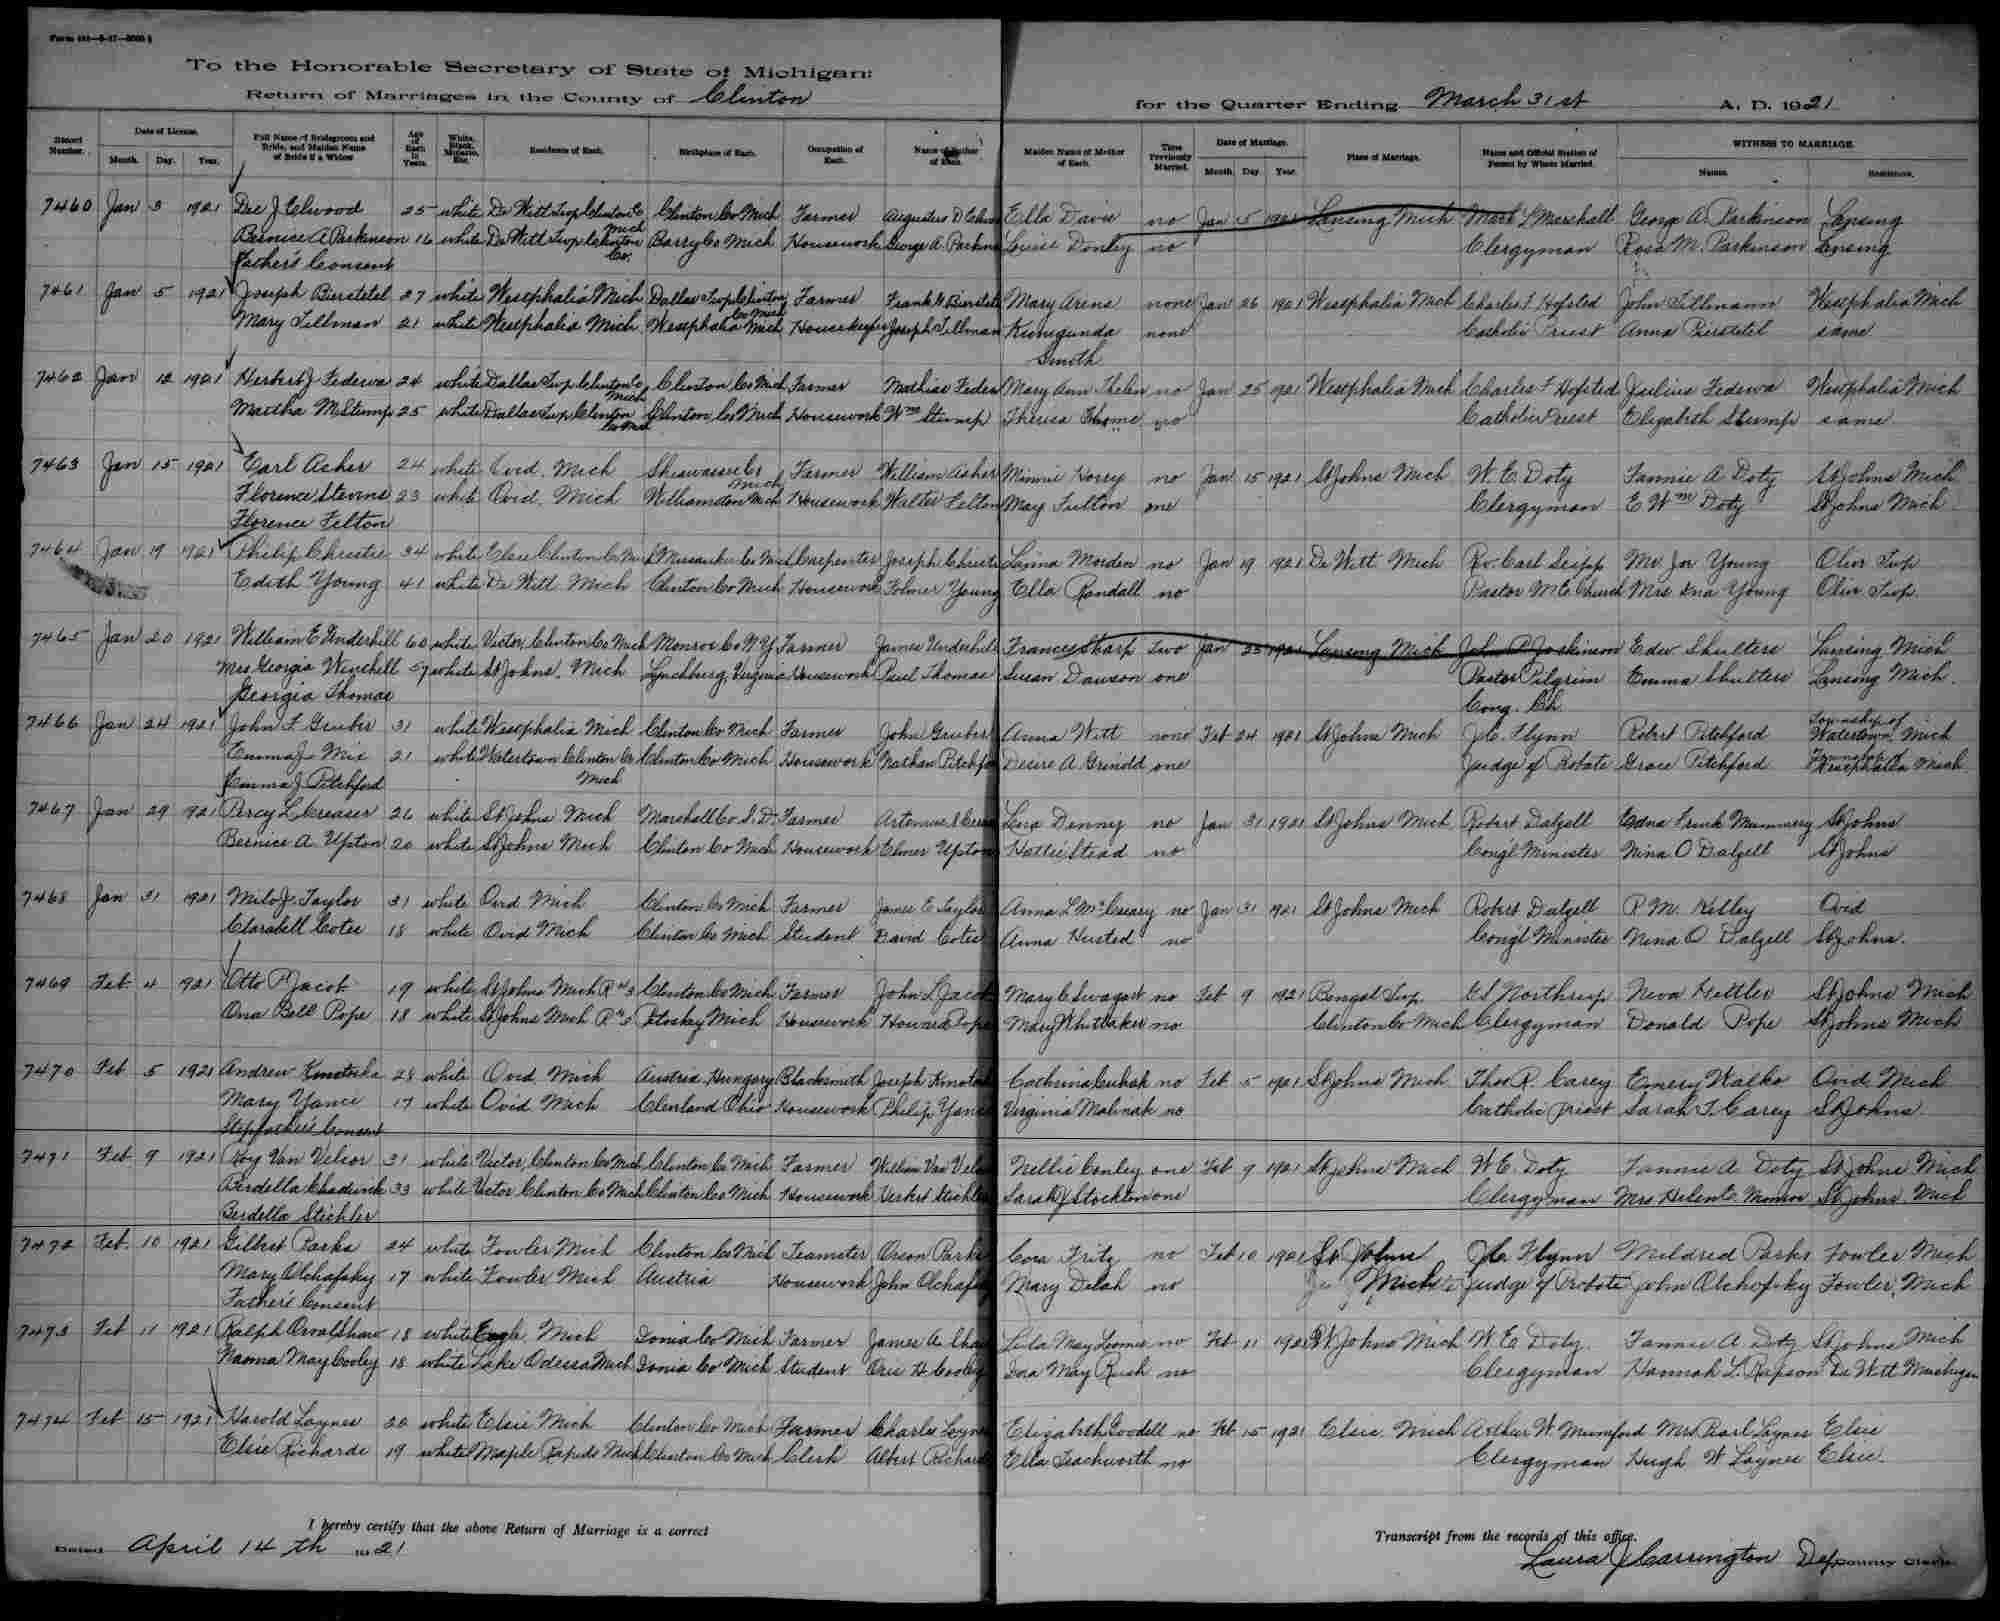 To the Honorable Secretary of State of Michigan:
Return of Marriages in the County of Clinton for the Quarter Ending March 31st A. D. 1921
Record Number. Date of License. Month. Day. Year. Full Name of Bridegroom and Bride, and Maiden Name of Bride if a Widow Age of Each in Years. White, Black, Mulatto, Etc. Residence of Each. Birthplace of Each. Occupation of Each. Name of Father of Each. Maiden Name of Mother of Each. Time Previously Married. Date of Marriage. Month Day Year. Place of Marriage. Name and Official Station of Person by Whom Married. WITNESS TO MARRIAGE. Names. Residence.
7460 Jan 3 1921 Dee J Elwood 25 white De Witt Twp Clinton Co Mich Clinton Co Mich Farmer Augustus D Ella Davis no Jan 5 1921 Lansing Mich Mark L Marshall George A. Parkinson Lansing
Bernice A Parkinson 16 white De Witt Twp Clinton Co. Barry Co Mich Housework George A. Louise Donley no Clergyman Rosa M. Parkinson Lansing
Father's Consent
7461 Jan 5 1921 Joseph Bierstetel 27 white Westphalia Mich Dallas Twp Clinton Co Mich Farmer Frank Mary Arens none Jan 26 1921 Westphalia Mich Charles F Hofsted John Tillmann Westphalia Mich
Mary Tillman 21 white Westphalia Mich Westphalia Mich Housekeeper Joseph Tillman Kunigunda Smith none Catholic Priest Anna Bierstetel same
7462 Jan 12 1921 Herbert J Federva 24 white Dallas Twp Clinton Co Mich Clinton Co Mich Farmer Mathias Mary Ann Thelen no Jan 25 1921 Westphalia Mich Charles F Hofsted Julius Federva Westphalia Mich
Martha M Stump 25 white Dallas Twp Clinton Co Mich Clinton Co Mich Housework Wm Stump Theresa Thome no Catholic Priest Elizabeth Stump same
7463 Jan 15 1921 Earl Acher 24 white Ovid, Mich Shiawassee Co Mich Farmer William Minnie no Jan 15 1921 St Johns Mich W. E. Doty Fannie A Doty St Johns Mich
Florence Stevens 23 white Ovid, Mich Williamston Mich Housework Walter Felton May Fulton one Clergyman E Wm Doty St Johns Mich
Florence Felton
7464 Jan 19 1921 Philip Christie 34 white Elsie Clinton Co Missaukee Co Mich Carpenter Joseph Christie Morden no Jan 19 1921 De Witt Mich Rev. Carl Seipp Mr. Joe Young Olive Twp
Edith Young 41 white De Witt Mich Clinton Co Mich Housework Young Ella Randall no Pastor M E Church Mrs Ina Young Olive Twp.
7465 Jan 20 1921 William E Underhill 60 white Victor, Clinton Co Mich Monroe Co N.Y. Farmer James Underhill Frances Sharp two Jan 23 1921 Lansing Mich John P Edw Shulters Lansing Mich
Mrs Georgia Winchell 57 white St Johns, Mich Lynchburg, Virginia Housework Paul Thomas Susan Dawson one Pastor Pilgrim Emma Shulters Lansing Mich.
Georgia Thomas Cong. Ch.
7466 Jan 24 1921 John F Gruber 31 white Westphalia Mich Clinton Co Mich Farmer John Gruber Anna Witt none Feb 24 1921 St Johns Mich J.C. Flynn Robert Pitchford Township of Watertown Mich
Emma J Mix 21 white Watertown Clinton Co Mich Clinton Co Mich Housework Nathan Desire A. Grinold one Judge of Probate Grace Pitchford Township of Westphalia Mich
Emma J Pitchford
7467 Jan 29 1921 Percy L Creaser 26 white St Johns Mich Marshall Co S.D. Farmer Denny no Jan 31 1921 St Johns Mich Robert Dalzell Edna Frink Mummery St Johns
Bernice A Upton 20 white St Johns Mich Clinton Co Mich Housework Elmer Upton Hattie Stead no Congl Minister Nina O Dalzell St Johns
7468 Jan 31 1921 Milo J. Taylor 31 white Ovid Mich Clinton Co Mich Farmer James E Taylor Anna L McCreary no Jan 31 1921 St Johns Mich Robert Dalzell R. M. Kelley Ovid
Clarabell Cotes 18 white Ovid Mich Clinton Co Mich Student David Cotes Anna Husted no Congl Minister Nina O Dalzell St Johns.
7469 Feb 4 1921 Otto P Jacob 19 white St Johns Mich R#3 Clinton Co Mich Farmer John L Jacob Mary C Swagart no Feb 9 1921 Bengal Twp. Northrup Neva Hettler St Johns Mich
Ona Bell Pope 18 white St Johns Mich R#3 Petoskey Mich Housework Howard Pope Mary Whittaker no Clinton Co Mich Clergyman Donald Pope St Johns Mich
7470 Feb 5 1921 Andrew 28 white Ovid Mich Austria Hungary Blacksmith Joseph Cathrina no Feb 5 1921 St Johns Mich Thos R. Carey Emery Walko Ovid Mich
Mary Yance 17 white Ovid Mich Cleveland Ohio Housework Philip Yance Virginia Malinak no Catholic priest Sarah T. Carey St Johns.
Stepfather's Consent
7471 Feb 9 1921 Roy Van Velsor 31 white Victor, Clinton Co Mich Clinton Co Mich Farmer William Nellie Conley one Feb 9 1921 St Johns Mich W E. Doty Fannie A Doty St Johns Mich
Berdella Chadwick 33 white Victor Clinton Co Mich Clinton Co Mich Housework Sarah J Stockton one Clergyman Mrs Helen E Monroe St Johns Mich
Berdella Stichler
7472 Feb. 10 1921 Gilbert Parks 24 white Fowler Mich Clinton Co Mich Teamster Orson Parks Cora Fritz no Feb 10 1921 St Johns J.C. Flynn Mildred Parks Fowler Mich
Mary Olchafsky 17 white Fowler Mich Austria Housework John Mary Delah no Mich Judge of Probate John Olchofsky Fowler, Mich
Father's Consent
7473 Feb 11 1921 Ralph Orval Shaw 18 white Eagle, Mich Ionia Co Mich Farmer James A. Shaw Lela May Loomis no Feb 11 1921 St Johns Mich W. E Doty. Fannie A Doty St Johns Mich
Naoma May Cooley 18 white Lake Odessa Mich Ionia Co Mich Student Orie H Cooley Iva May Rush no Clergyman Hannah L. Rapson De Witt Michigan
7474 Feb 15 1921 Harold Loynes 20 white Elsie Mich Clinton Co Mich Farmer Charles Loynes Elizabeth Goodell no Feb 15 1921 Elsie Mich Arthur W. Mumford Mrs Pearl Loynes Elsie
Elsie Richards 19 white Maple Rapids Mich Clinton Co Mich Clerk Albert Richards Ella Leachworth no Clergyman Hugh W Loynes Elsie.
I hereby certify that the above Return of Marriage is a correct Transcript from the records of this office.
Dated April 14th 1921 Laura J Carrington Dep County Clerk